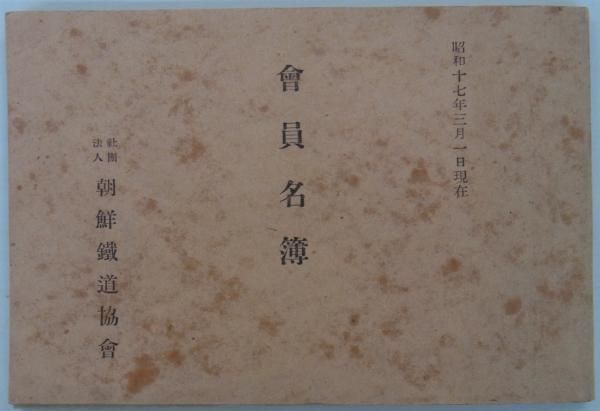 昭和十七年三月一日現在
會員名簿
社團法人 朝鮮鐵道協會